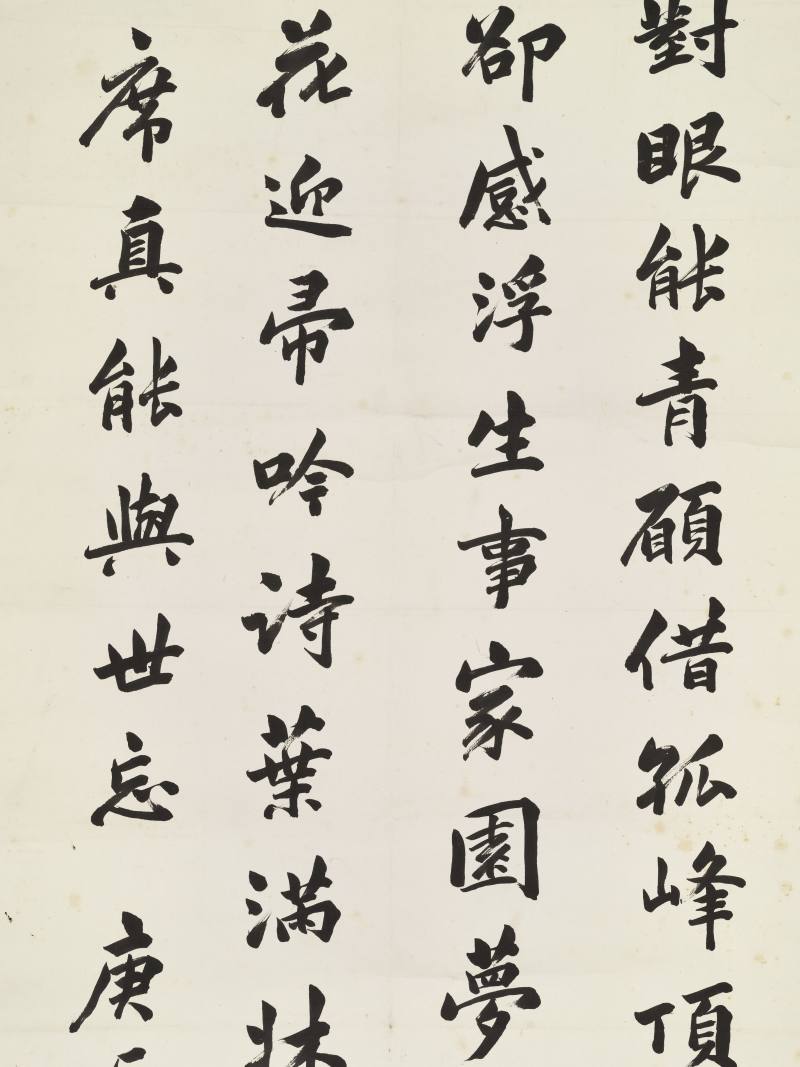 對眼能青願借孤峰頂
卻感浮生事家園夢
花迎帚吟詩葉滿牀
席真能與世忘庚